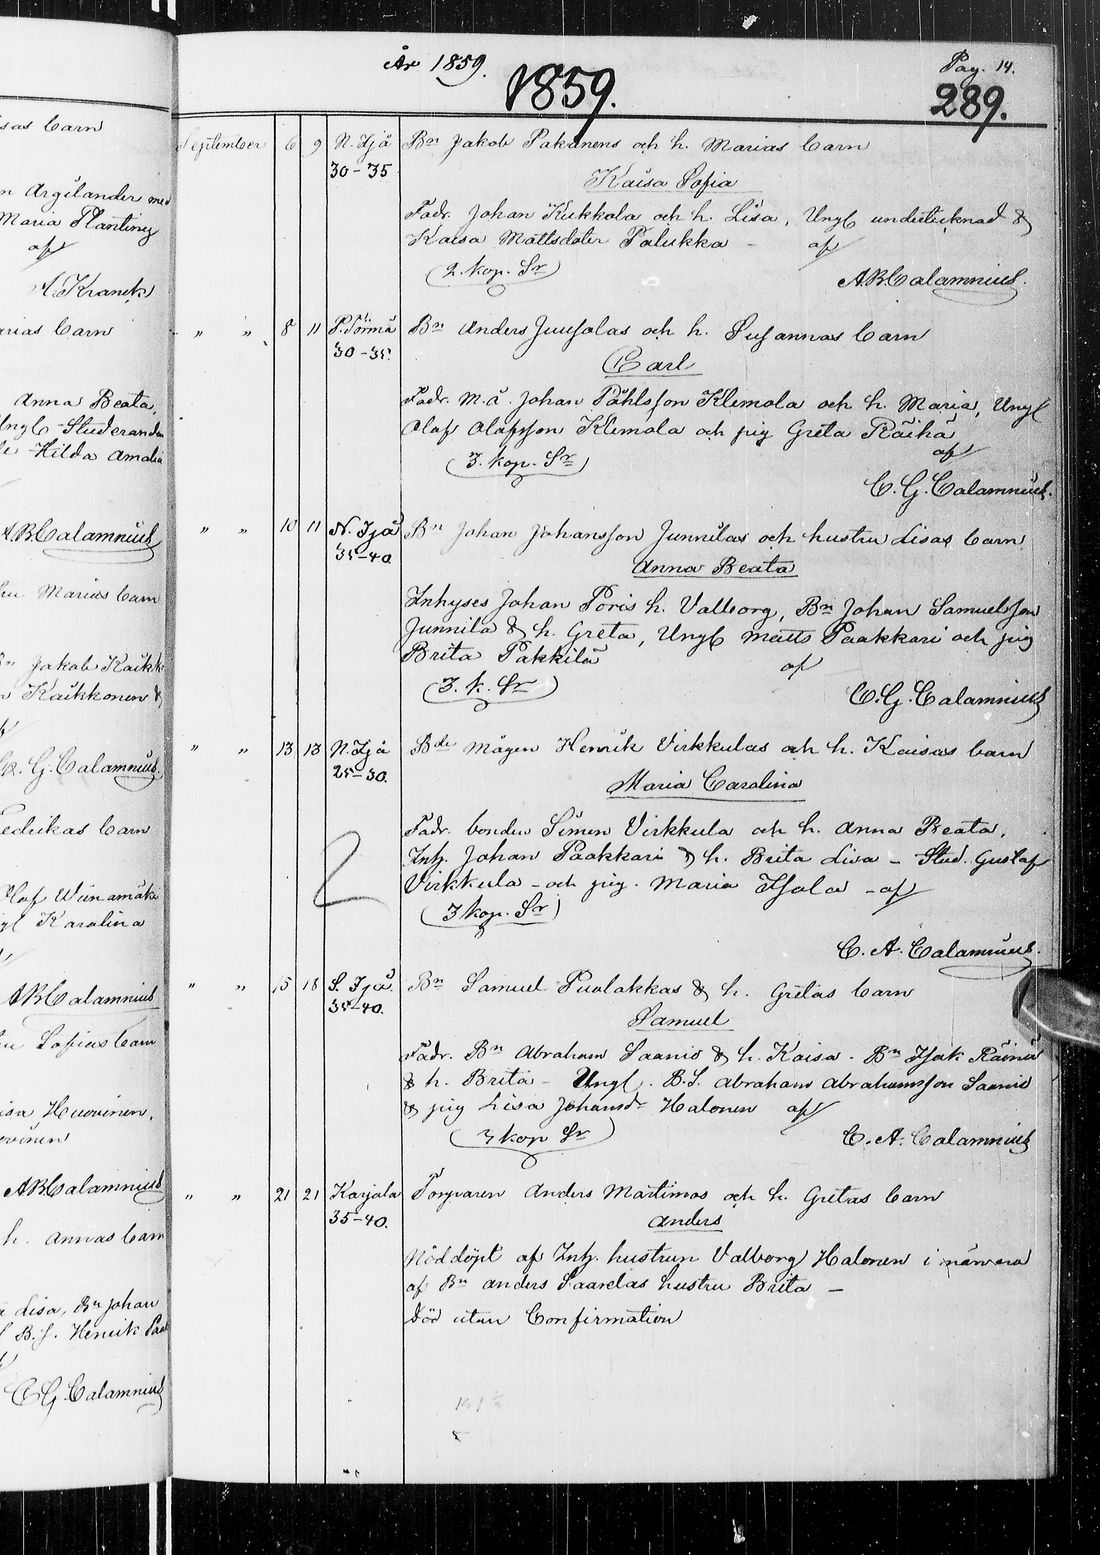 sas barn
n Argilander med
Maria Planting
af
A. Kranck
arias barn
Anna Beata,
Ungk. Studeranden
Hilda Amalia
A.B. Calamnius
hu Marias barn
Bn Jakob Kaikk
n Kaikkonen &
C. G. Calamnius.
edrikas barn
Olof Wiinamäki
Karolina
A.B. Calamnius
Sofias barn
isa Huovinen,
ovinen
A.B. Calamnius
h. Annas barn
a Lisa, Bn Johan
B.s. Henrik Paa
C.G. Calamnius
År 1859. Pag. 14.
1859. 289.
September 6 9 N. Ijå Bn Jakob Pakanens och h. Marias barn
30-35 Kaisa Sofia
Fadr. Johan Kukkola och h. Lisa, Ungk undertecknad &
Kaisa Mattsdoter Palukka – af
(2. kop. Sr) A.B. Calamnius.
" " 8 11 P. Törmä Bn Anders Juusolas och h. Susannas barn
30-35. Carl
Fadr. M.ä. Johan Påhlsson Klemola och h. Maria, Ungk
Olof Olofsson Klemola och pig Greta Räihä
af
(3. kop. Sr) C. G. Calamnius.
" " 10 11 N. Ijå Bn Johan Johansson Junnilas och hustru Lisas barn
35-40. Anna Beata
Inhyses Johan Poris h. Valborg, Bn Johan Samuelsson
Junnila & h. Greta, Ungk Matts Paakkari och pig
Brita Pakkila af
(3. k. Sr) C.G. Calamnius
" " 13 13 N. Ijå Bde mågen Henrik Virkkulas och h. Kaisas barn
25-30. Maria Carolina
Fadr. bonden Simon Virkkula och h. Anna Beata,
Inh. Johan Paakkari & h. Brita Lisa – Stud. Gustaf
Virkkula – och pig. Maria Isola – af
(3 kop. Sr)
C. A. Calamnius.
" " 15 18 S. Ijå. Bn Samuel Puolakkas & h. Gretas barn
35-40. Samuel
Fadr. Bn Abraham Saanio & h. Kaisa. Bn Isak Räinä
& h. Brita – Ungk. B.S. Abraham Abrahamsson Saanio
& pig Lisa Johansdr Halonen af
(3 kop Sr) C. A. Calamnius
" " 21 21 Karjala Torparen Anders Martimos och h. Gretas barn
35-40. Anders
Nöddöpt af Inh. hustrun Valborg Halonen i närvara
af Bn Anders Saarelas hustru Brita –
Död utan Confirmation